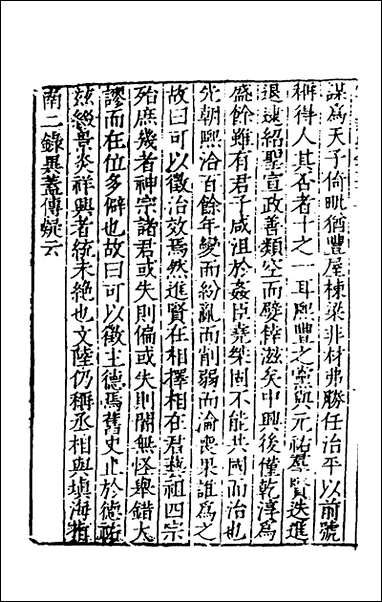 謀爲天子倚毗猶豐屋棟梁非材弗勝任治平以前號
稱得人其否者十之一耳熙豐之黨與元祐羣賢迭進
退逮紹聖宣政善類空而孽倖滋矣中興後僅乾淳爲
盛餘雖有君子咸沮於姦臣堯桀固不能共國而治也
先朝熙洽百餘年變而紛亂而削弱而淪喪果誰爲之
故曰可以徵治效焉然進賢任相擇相在君藝祖四宗
殆庶幾者神宗諸君或失則偏或失則闇無怪舉錯大
謬而在位多僻也故曰可以徵主德焉舊史止於德祐
茲綴景炎祥興者統未絶也文陸仍稱丞相與填海指
南二錄異蓋傳疑云